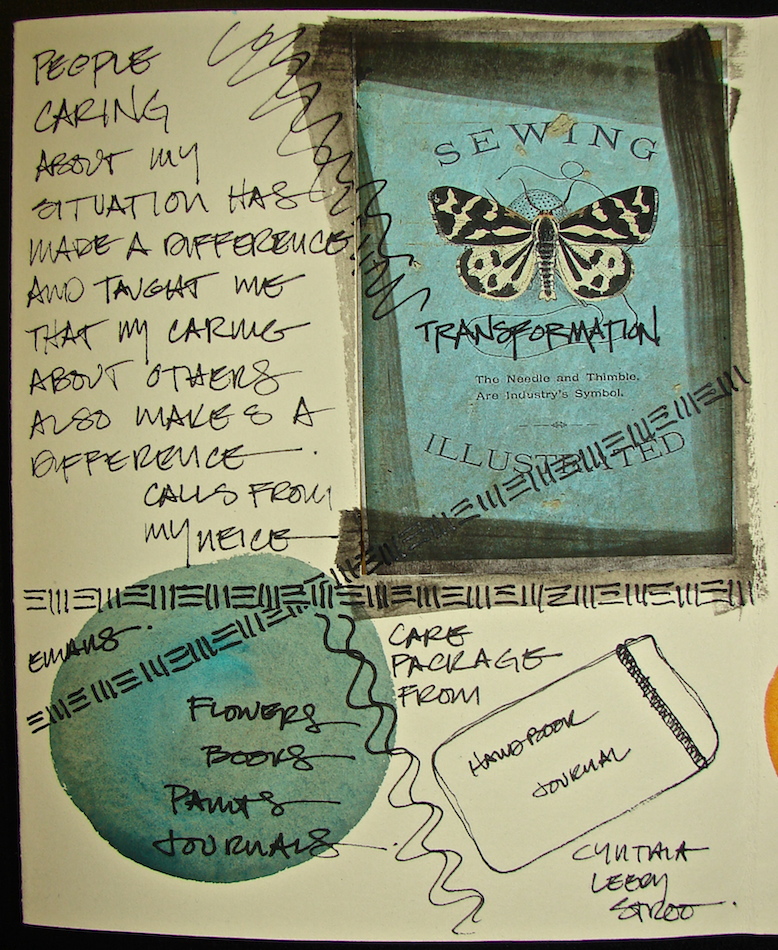 PEOPLE
CARING
ABOUT MY
SITUATION HAS
MADE A DIFFERENCE
AND TAUGHT ME
THAT MY CARING
ABOUT OTHERS
ALSO MAKES A
DIFFERENCE.
CALLS FROM
MY NEICE
EMAILS.
FLOWERS
BOOKS
PAINTS
JOURNALS.
SEWING
TRANSFORMATION
The Needle and Thimble,
Are Industry's Symbol.
ILLUSTRATED
CARE
PACKAGE
FROM
HANDBOOK
JOURNAL
CYNTHIA